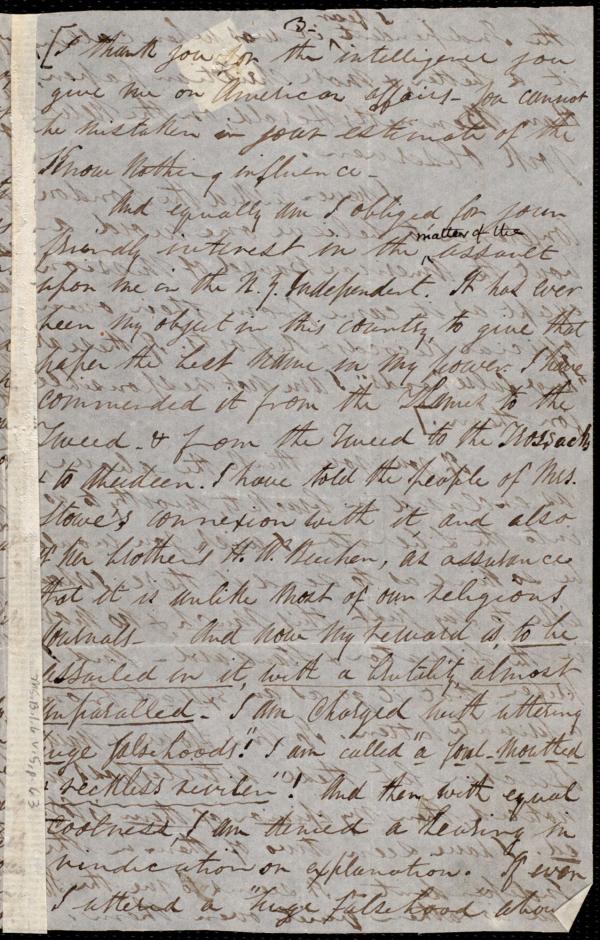 3.
[I thank you for the intelligence you
give me on American affairs - You cannot
be mistaken in your estimate of the
Know Nothing influence -
And equally am I obliged for your
friendly interest in the matter of the assault
upon me in the N. Y. Independent. It has ever
been my object in this country, to give that
paper the best name in my power. I have
commended it from the Thames to the
Tweed - & from the Tweed to the Trossachs
& to Aberdeen. I have told the people of Mrs.
Stowe's connexion with it, and also
of her brother's H. W. Beecher, as assurance
that it is unlike most of our religious
journals - And now my reward is, to be
assailed in it, with a brutality almost
unparalled - I am charged with uttering
"huge falsehoods"! I am called "a foul-mouthed
& reckless reviler"! And then with equal
coolness, I am denied a hearing in
vindication or explanation. If ever
I uttered a "huge falsehood" about